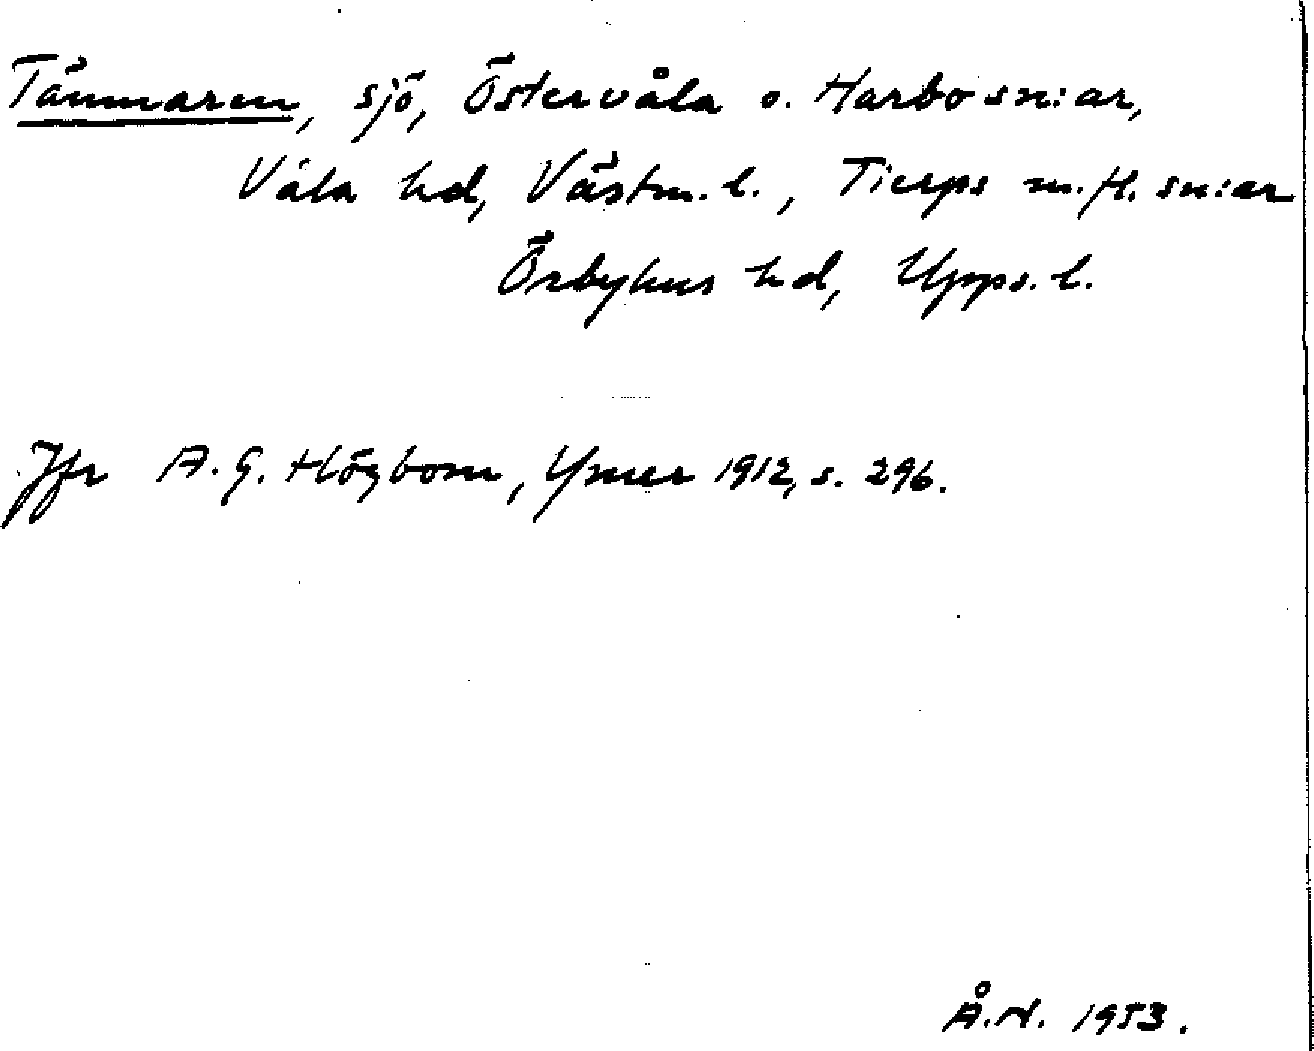 Tämnaren, sjö, Östervåla o. Harbo sn:ar,
Våla hd, Västm. l., Tierps m.fl. sn:ar
Örbyhus hd, Upps. l.
Jfr A. G. Högbom, Ymer 1912, s. 296.
Å.N. 1953.